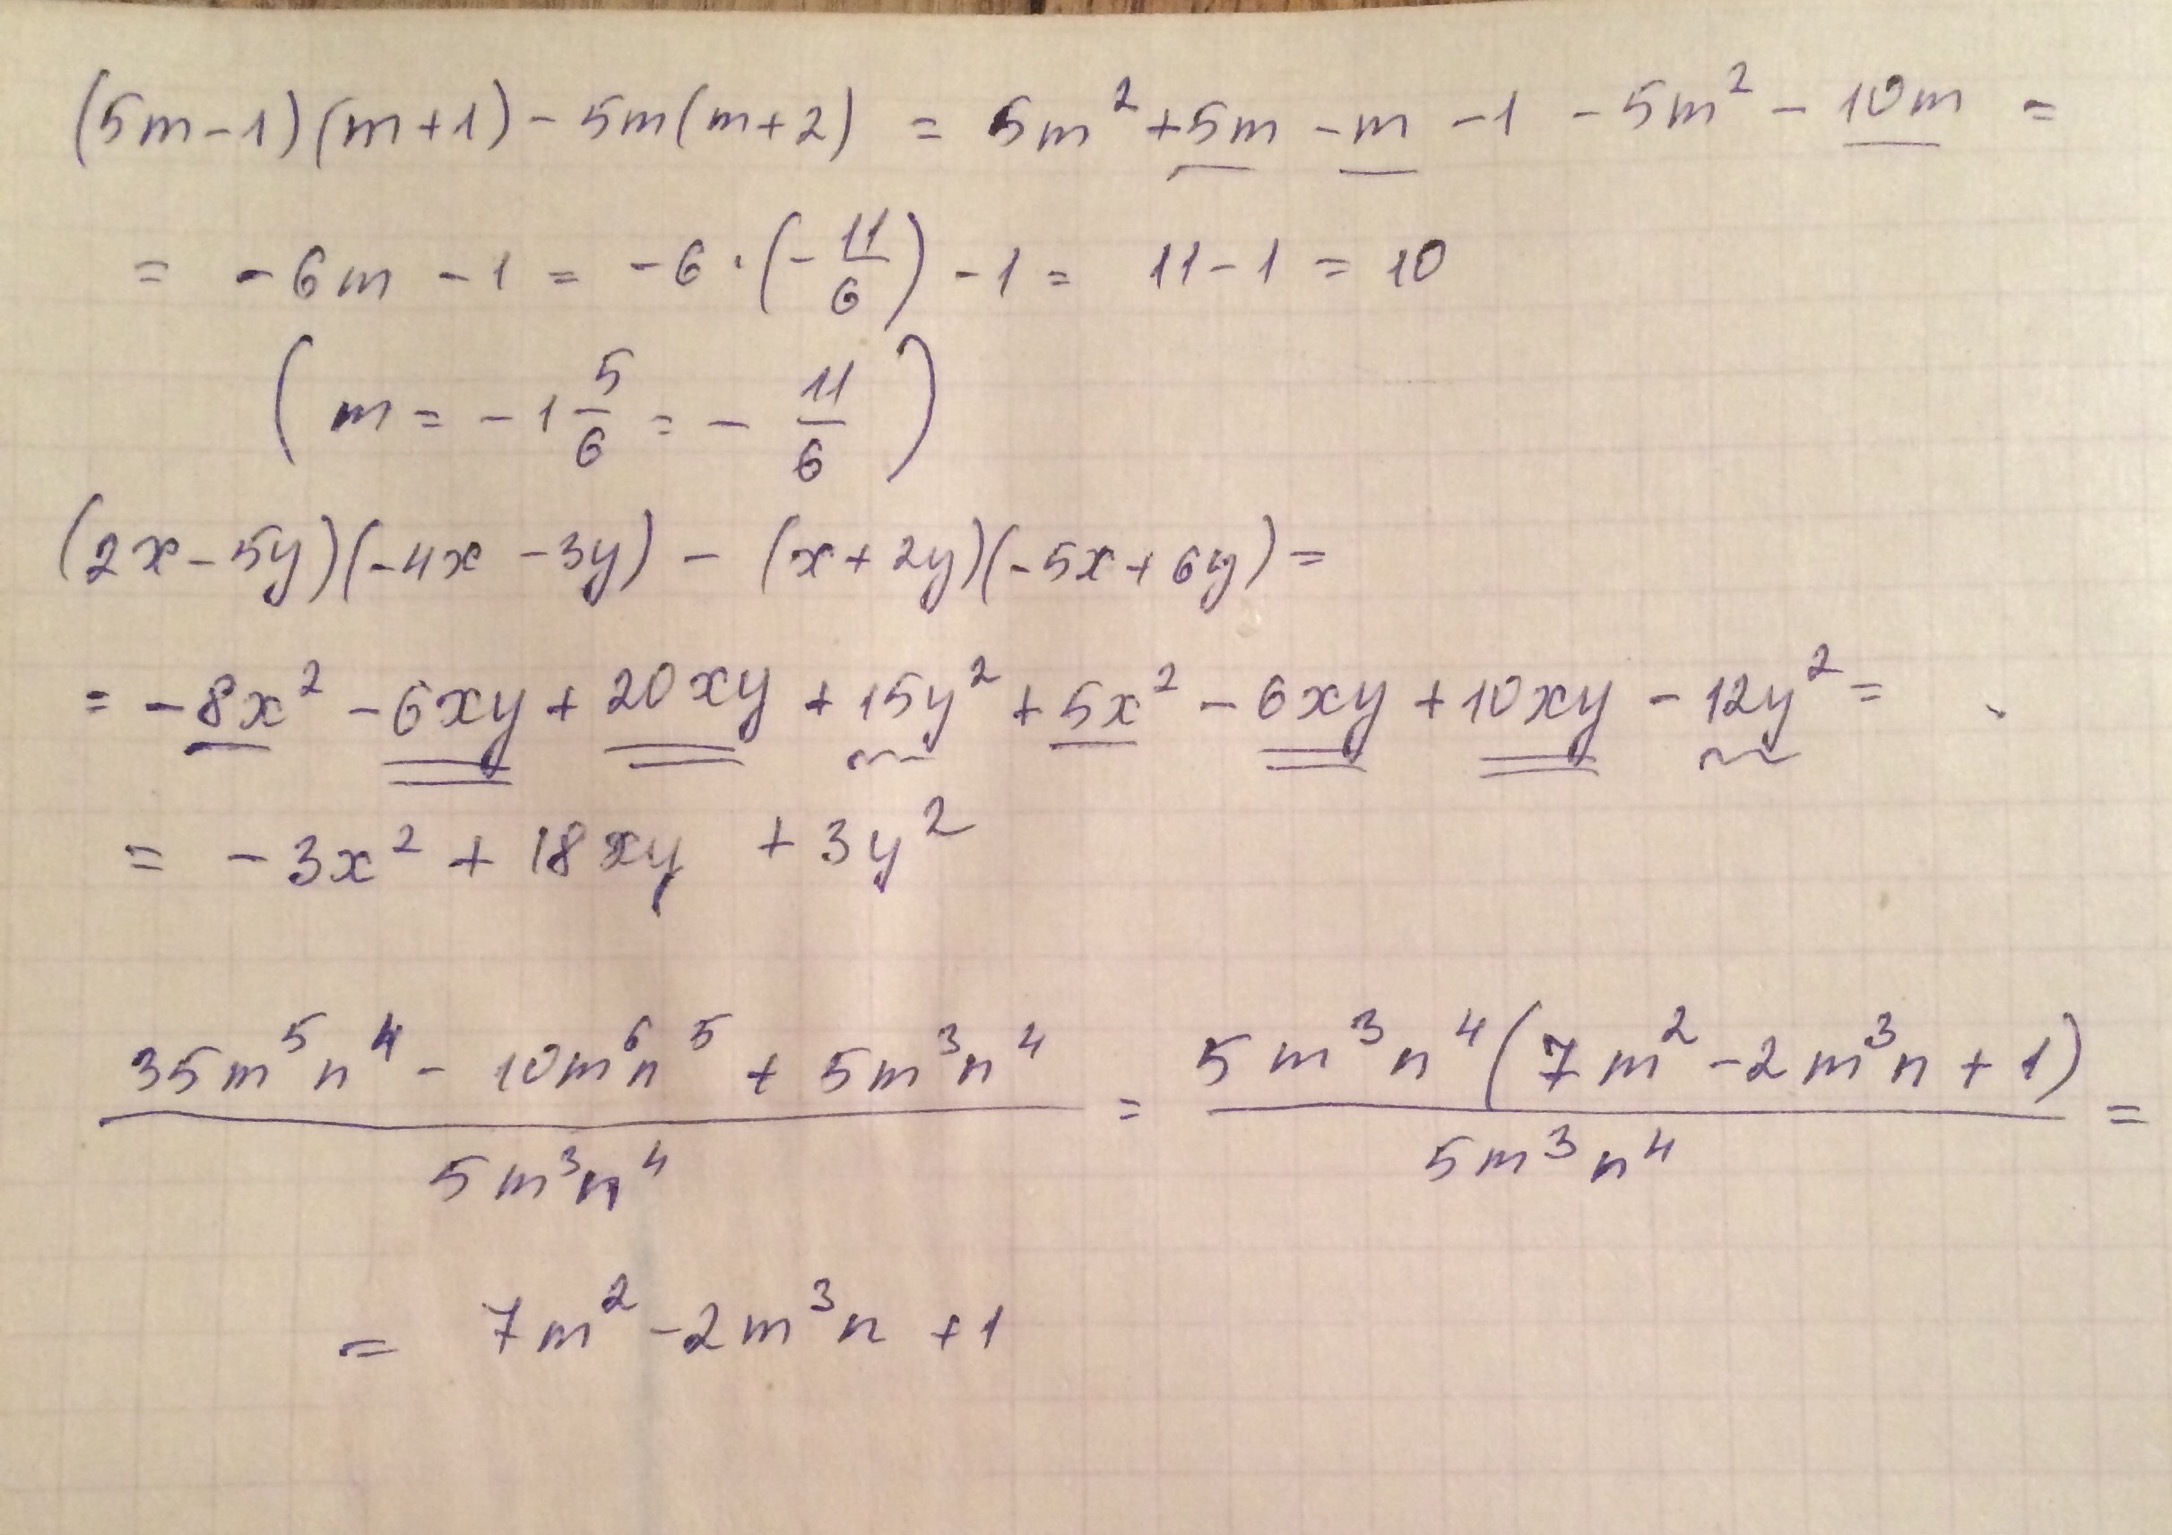 (5m-1)(m+1) - 5m(m+2) = 5m² + 5m - m - 1 - 5m² - 10m =
= -6m - 1 = -6 · (-11/6) - 1 = 11 - 1 = 10
(m = -1 5/6 = -11/6)
(2x - 5y)(-4x - 3y) - (x + 2y)(-5x + 6y) =
= -8x² - 6xy + 20xy + 15y² + 5x² - 6xy + 10xy - 12y² =
= -3x² + 18xy + 3y²
(35m⁵n⁴ - 10m⁶n⁵ + 5m³n⁴)/(5m³n⁴) = 5m³n⁴(7m² - 2m³n + 1)/(5m³n⁴) =
= 7m² - 2m³n + 1